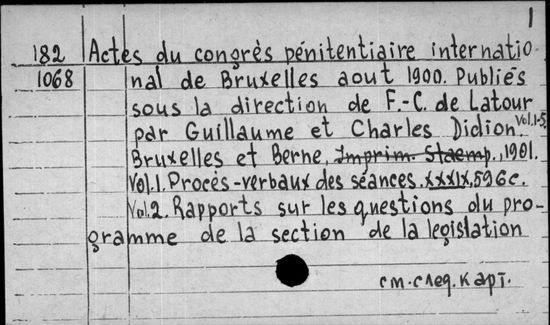 1
182 Actes du congrès pénitentiaire internatio-
1068 nal de Bruxelles aout 1900. Publiés
sous la direction de F.-C. de Latour
par Guillaume et Charles Didion. Vol.1-5
Bruxelles et Berne, Imprim. Staemp., 1901.
Vol.1. Procès-verbaux des séances. XXXIX, 596 c.
Vol.2. Rapports sur les questions du pro-
gramme de la section de la legislation
см. след. карт.